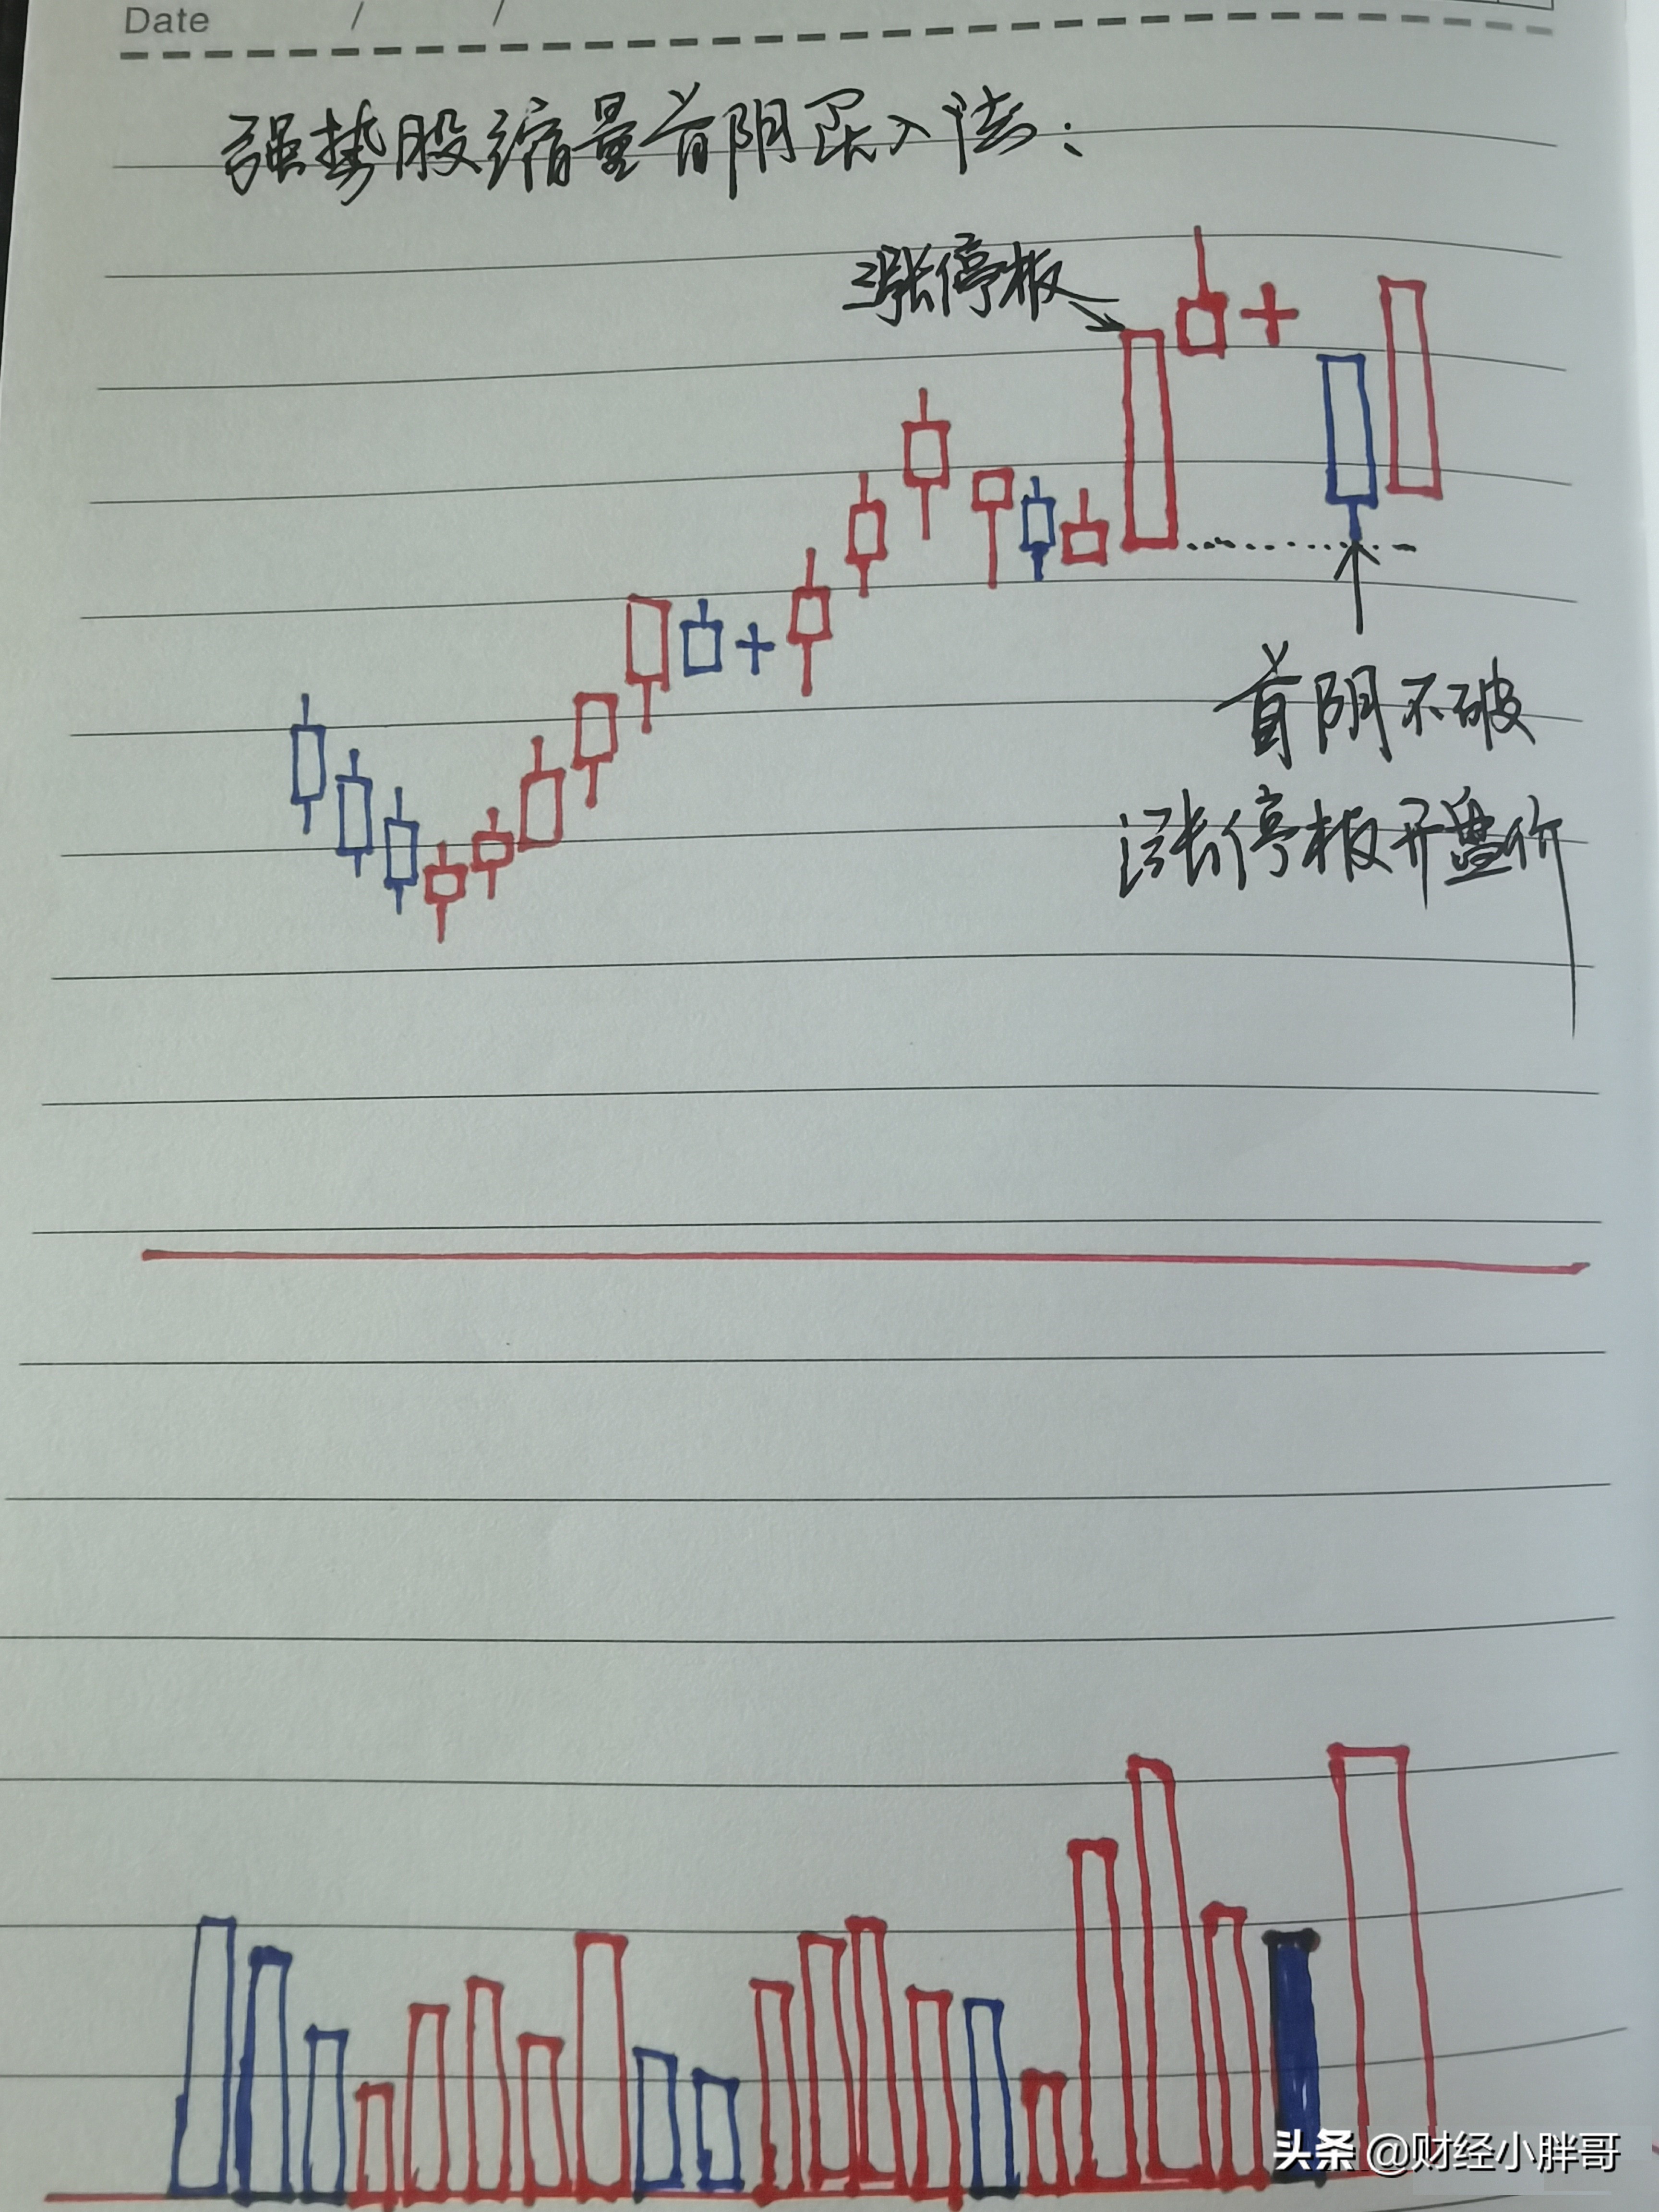 Date / /
强势股缩量首阴买入法:
涨停板
首阴不破
涨停板开盘价
头条 @财经小胖哥